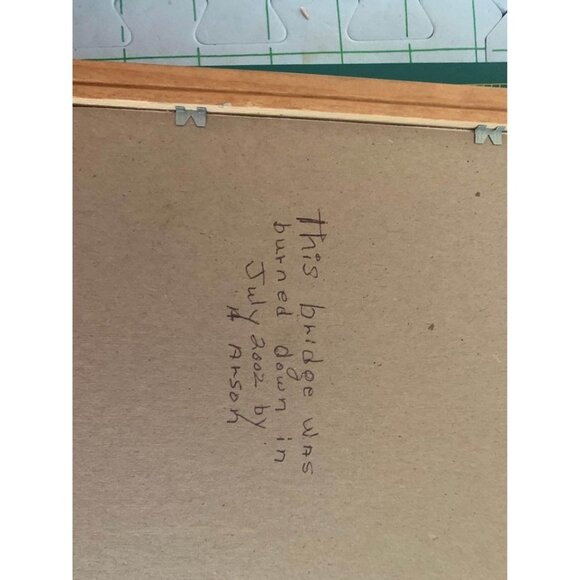 This bridge was
burned down in
July 2002 by
A Arson